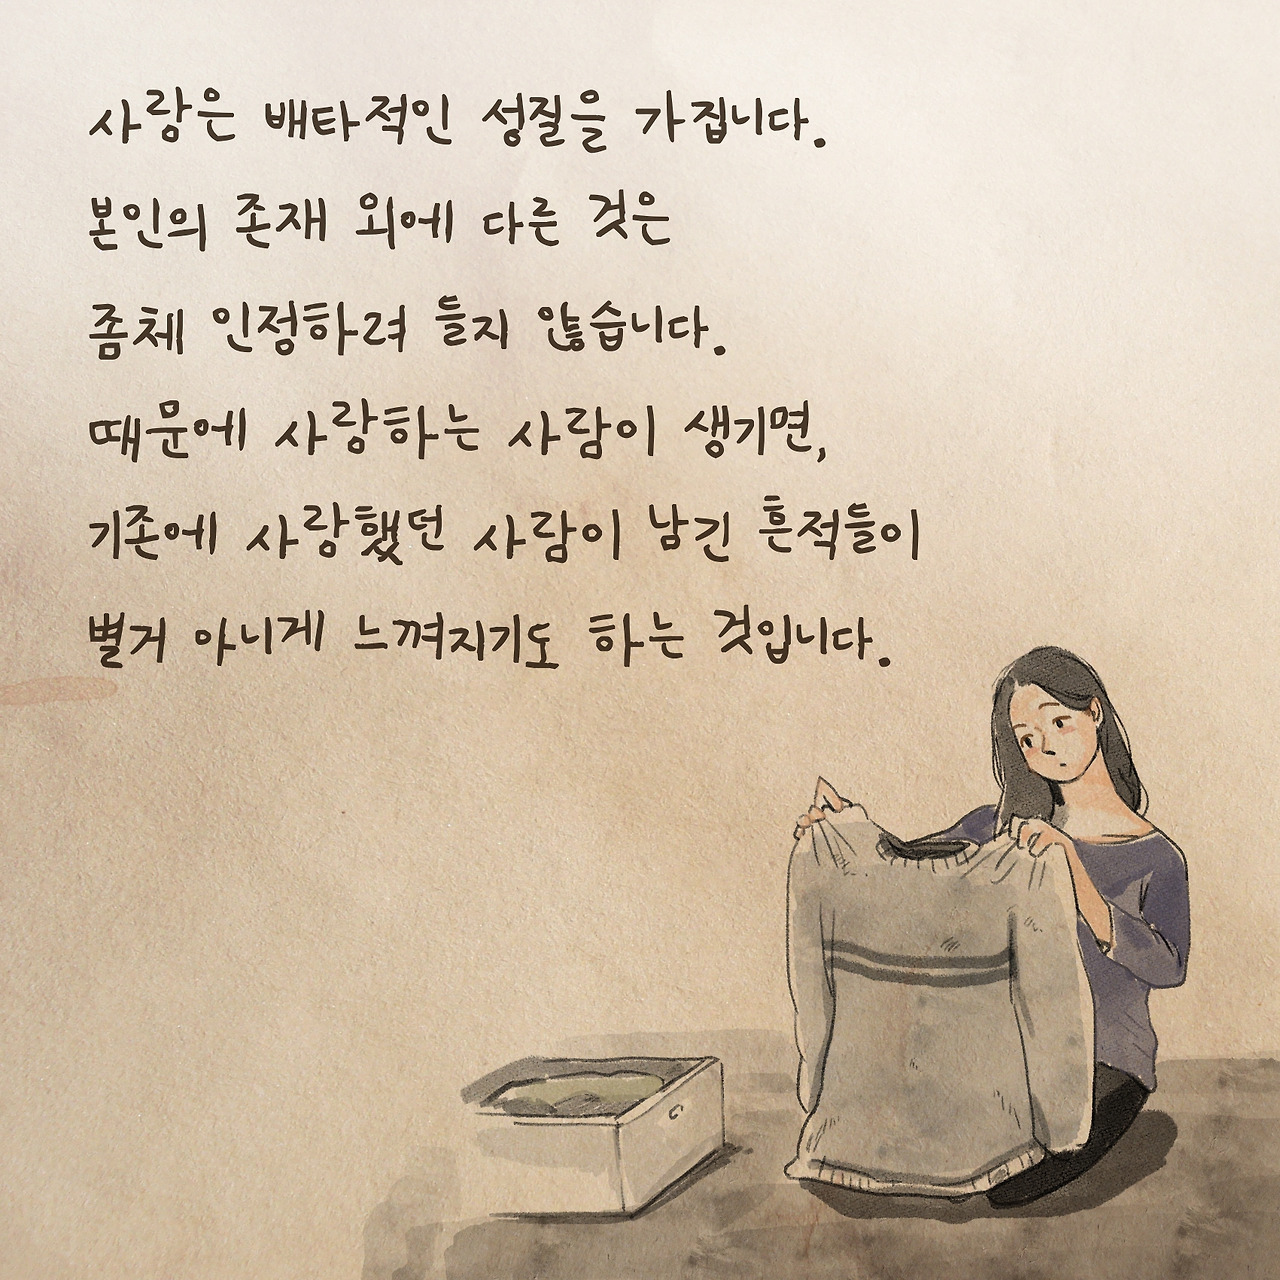 사랑은 배타적인 성질을 가집니다.
본인의 존재 외에 다른 것은
좀체 인정하려 들지 않습니다.
때문에 사랑하는 사람이 생기면,
기존에 사랑했던 사람이 남긴 흔적들이
별거 아니게 느껴지기도 하는 것입니다.